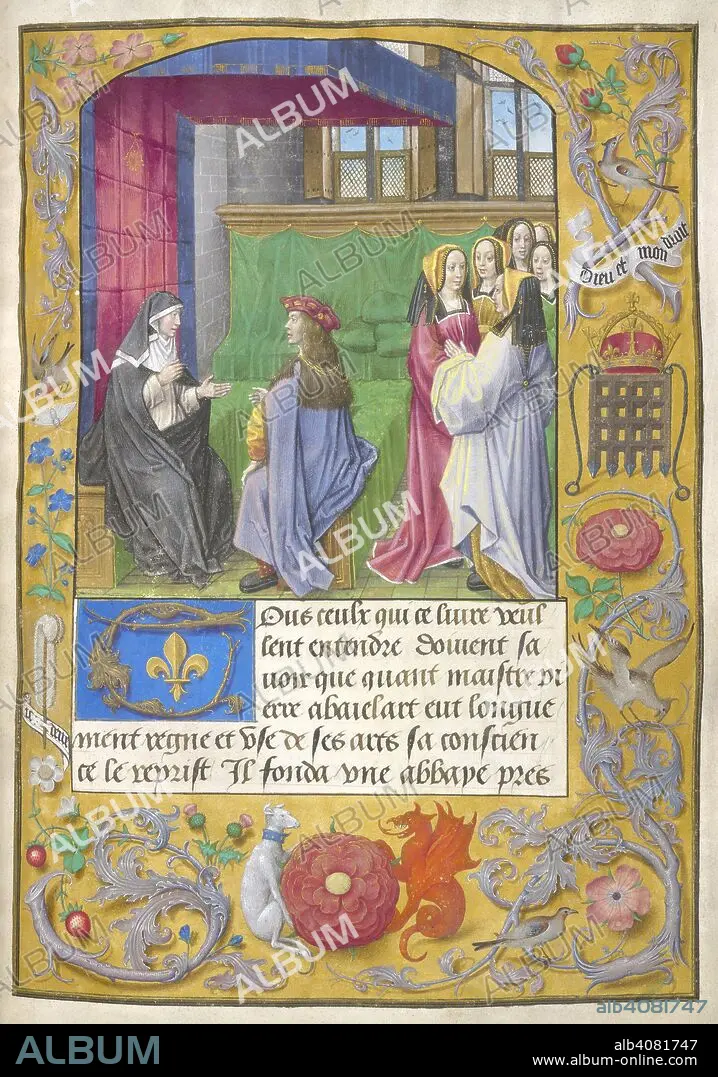 Dieu et mon droit
Ous ceulx qui ce liure veul
lent entendre doiuent sa
uoir que quant maistre pi
erre abaielart eut longue
ment regne et vse de ses ars sa conscien
ce le reprist Il fonda vne abbaye pres
ALBUM
alb4081747
ALBUM
alb4081747
www.album-online.com